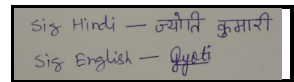 Sig Hindi — ज्योति कुमारी
Sig English — Gyoti